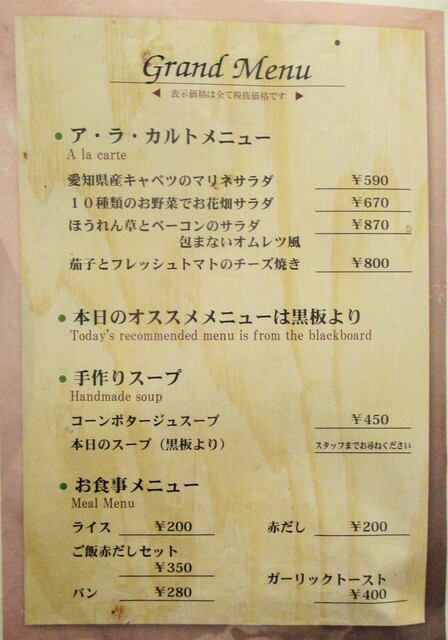 Grand Menu
◀ 表示価格は全て税抜価格です ▶
●ア・ラ・カルトメニュー
A la carte
愛知県産キャベツのマリネサラダ ￥590
１０種類のお野菜でお花畑サラダ ￥670
ほうれん草とベーコンのサラダ ￥870
包まないオムレツ風
茄子とフレッシュトマトのチーズ焼き ￥800
●本日のオススメメニューは黒板より
Today's recommended menu is from the blackboard
●手作りスープ
Handmade soup
コーンポタージュスープ ￥450
本日のスープ（黒板より） スタッフまでお尋ねください
●お食事メニュー
Meal Menu
ライス ￥200 赤だし ￥200
ご飯赤だしセット
￥350
ガーリックトースト
パン ￥280 ￥400